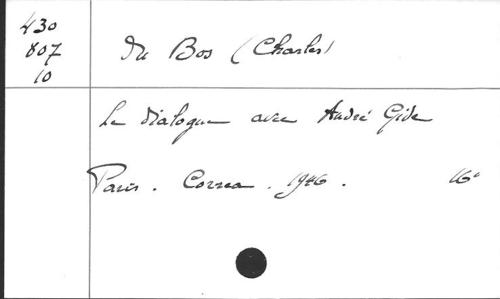 430
807
10
Du Bos (Charles)
Le dialogue avec André Gide
Paris. Correa. 1946. 16°